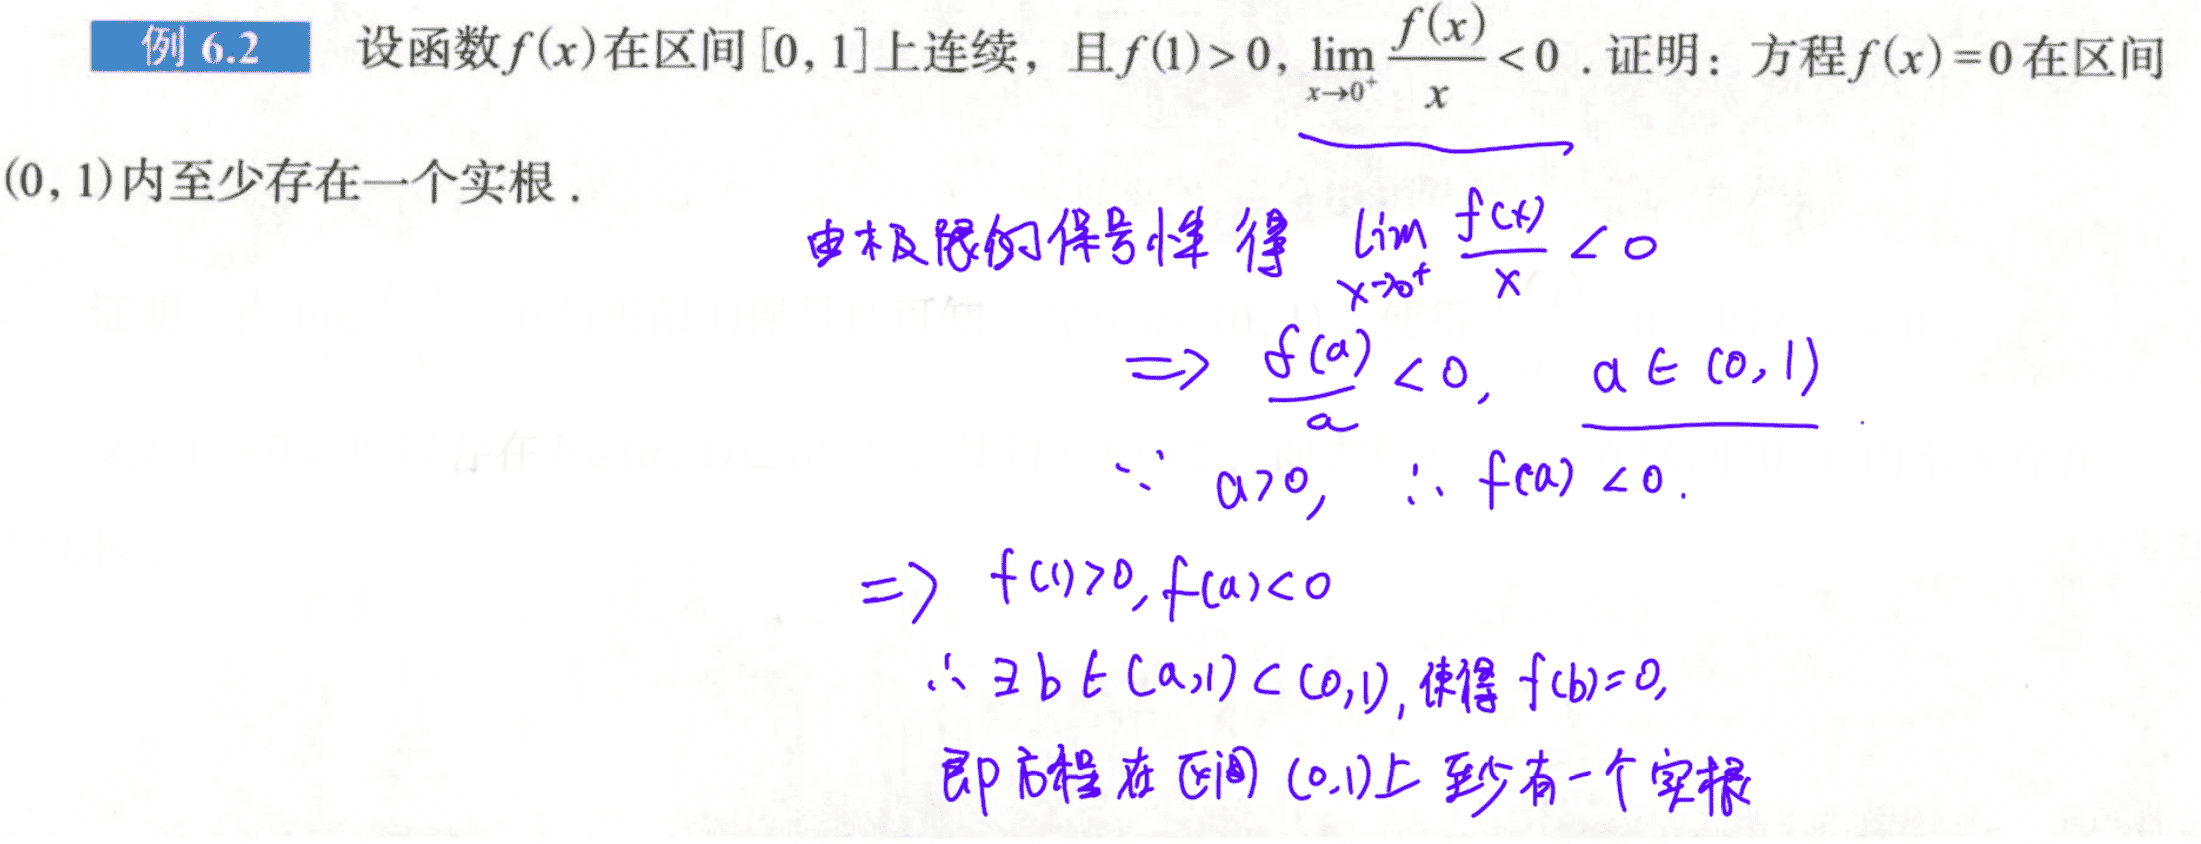 例 6.2 设函数f(x)在区间[0, 1]上连续，且f(1)>0, lim_{x→0⁺} f(x)/x <0 . 证明：方程f(x)=0在区间
(0, 1)内至少存在一个实根 .
由极限的保号性得 lim_{x→0⁺} f(x)/x < 0
=> f(a)/a < 0, a ∈ (0, 1)
∵ a>0, ∴ f(a) < 0.
=> f(1)>0, f(a)<0
∴ ∃ b ∈ (a,1) ⊂ (0,1), 使得 f(b)=0,
即方程在区间 (0,1)上 至少有一个实根